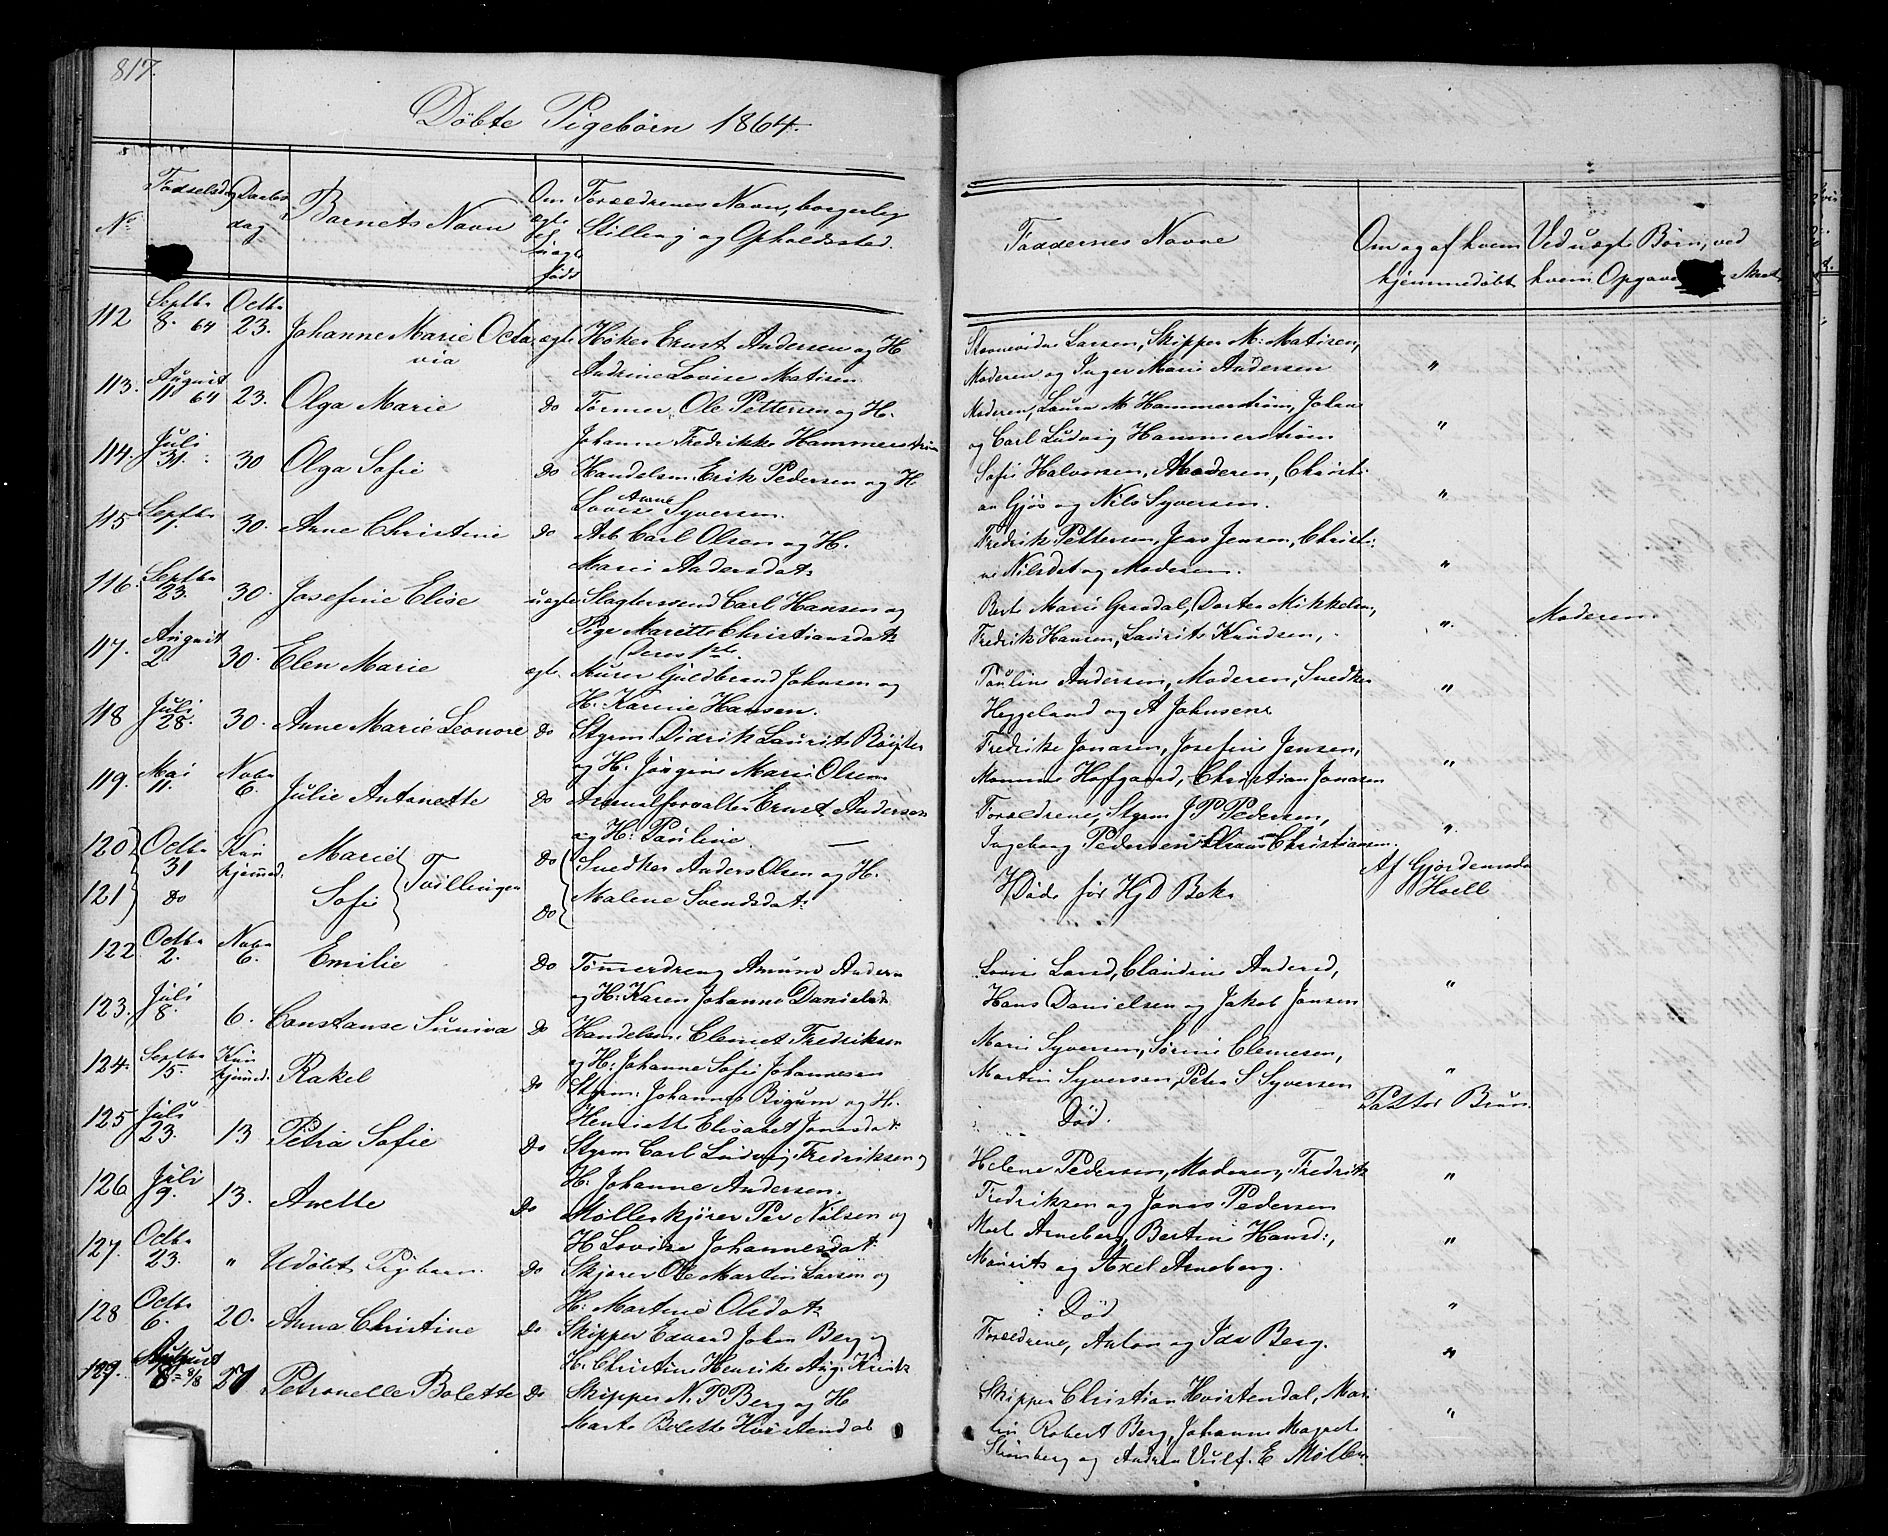 817.
Döbte Pigebörn 1864.
No
Födselsdag
Daabsdag
Barnets Navn
Om ægte el. uægte födt
Forældrenes Navn, borgerlig Stilling og Opholdssted.
Faddernes Navne
Om og af hvem hjemmedöbt
Ved uægte Börn, ved hvem Opgaven
112 Septbr 8. 64 Octbr 23. Johanne Marie Octavia ægte Höker Ernst Andersen og H
Andrine Lovise Matisen
Larsen, Skipper M. Matisen,
Moderen og Inger Marie Andersen "
113. August 11 64 23. Olga Marie do Tömmer. Ole Pettersen og H.
Johanne Fredrikke Hammerström
Moderen, Laura M Hammerström, Johan
og Carl Ludvig Hammerström "
114. Juli 31. 30 Olga Sofie do Handelsm. Erik Pedersen og H
Lovise Anne Syversen.
Sofie Halvorsen, Moderen, Christi
an Gjös og Nils Syversen. "
115 Septbr 1. 30. Anne Christine do Arb. Carl Olsen og H.
Marie Andersdat:
Fredrik Pettersen, Jens Jensen, Christi:
ne Nilsdat og Moderen. "
116. Septbr 23. 30. Josefine Elise uægte Slagtersvend Carl Hansen og
Pige Marette Christiansdat:
Deres 1ste
Bert Marie Grodal, Dorte Mikkelsen,
Fredrik Hansen, Laurits Knudsen, "
Moderen
117. August 2. 30. Elen Marie ægte Murer Guldbrand Johnsen og
H. Karine Hansen.
Pauline Andersen, Moderen, Snedker
Heggeland og A Johnsen "
118 Juli 28. 30. Anne Marie Leonore do Styrm Didrik Laurits
og H. Jörgine Marie Olsen
Fredrike Jonasen, Josefine Jensen,
Hofgaard, Christian Jonasen "
119. Mai 11. Novbr 6. Julie Antonette do Arsenalforvalter Ernst Andersen
og H: Pauline. —
Forældrene, Styrm J P Pedersen,
Ingeborg Pedersen Christiansen. "
120 Octbr 31 Kun hjemmed. Marie
121 do Sofie Tvillinger
do do Snedker Anders Olsen og H.
Malene Svendsdat:
Döde för Hjd Bek.
Af Gjordemoder Holl
122 Octbr 2. Novbr 6. Emilie do Tömmerdreng Amund Andersen
og H: Karen Johanne Danielsd.
Lovise Larsd, Claudine Andersd,
Hans Danielsen og Jakob Jansen "
123. Juli 8. 6. Constanse Suniva do Handelsm. Clemet Fredriksen
og H: Johanne Sofie Johannesen
Marie Syversen, Sörine Clemesen,
Martin Syversen, Peter S Syversen "
124. Septbr 15. Kun hjemmed. Rakel do Styrm. Johannes Bigum og H.
Henriette Elisabet Jonasdat:
Död.
Pastor Brun
125 Juli 23. 13 Petra Sofie do Styrm Carl Ludvig Fredriksen og
H. Johanne Andersen.
Helene Pedersen, Moderen, Fredrik
Fredriksen og Jonas Pedersen "
126 Juli 9. 13. Anette do Möllerkjörer Per Nilsen og
H Lovise Johannesdat:
Marl Arneberg, Bertine Hansd:,
Maurits og Axel Arneberg. "
127. Octbr 23. " Udöbt Pigebarn. do Skjører Ole Martin Larsen og
H: Martine Olsdat:
Död "
128 Octbr 6. 20. Anna Christine do Skipper Edvard Johan Berg og
H. Christine Henrike Aug.
Forældrene, Anton og Ida Berg. "
129. August 8= 8/8 27 Petronelle Bolette do Skipper N. P Berg og H
Marte Bolette Hvistendal
Skipper Christian Hvistendal, Mari
Robert Berg, Johanne Magret
Stensberg og Andrea E Möller. "